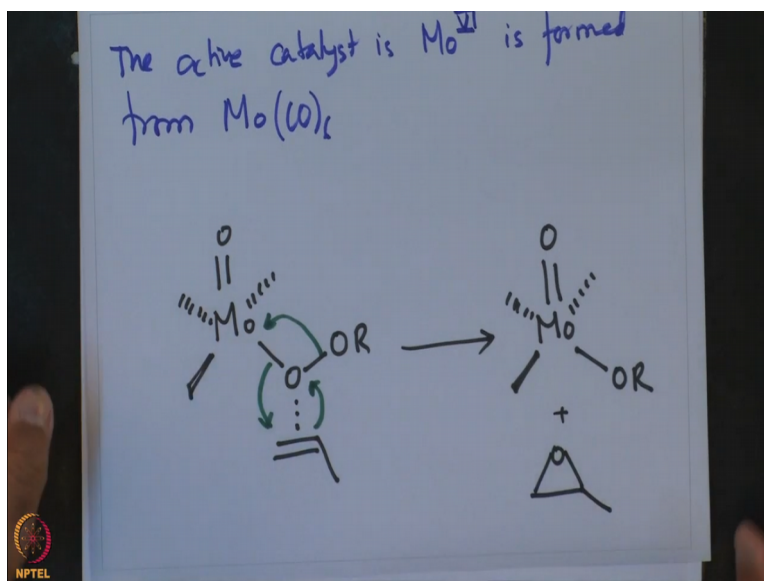 The active catalyst is Mo^VI is formed
from Mo(CO)6
O
O
Mo
OR
O
Mo
OR
+
O
NPTEL